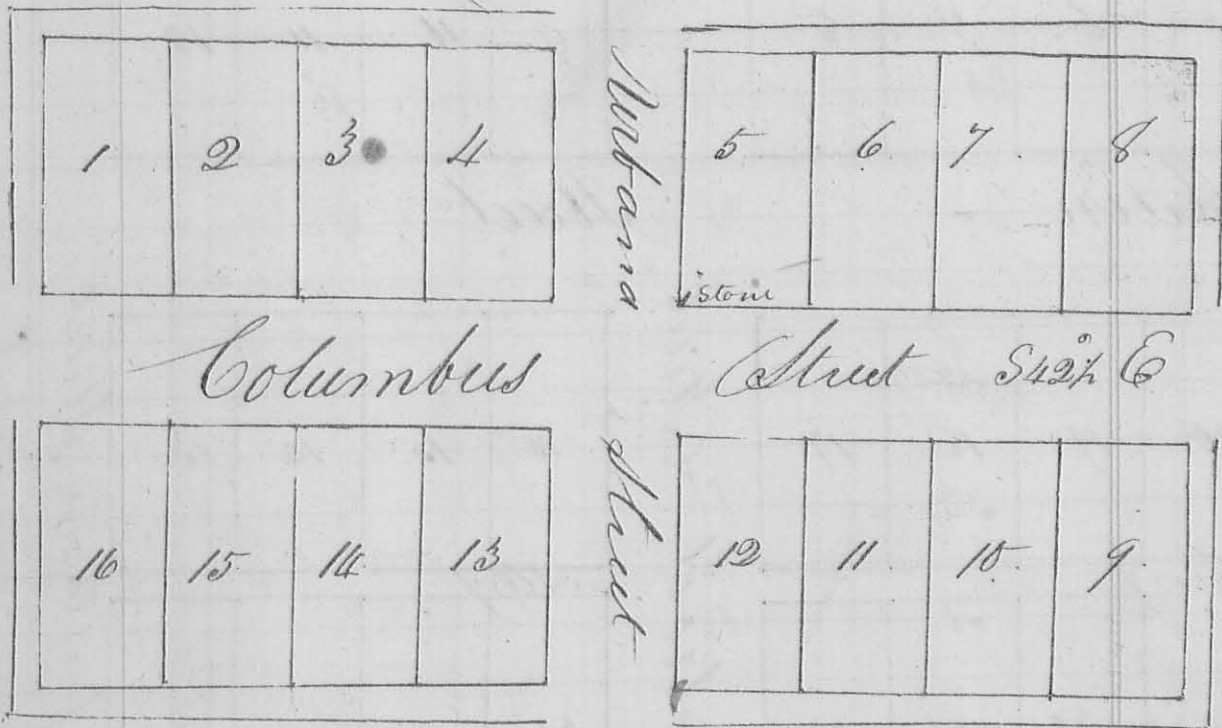 1 2 3 4
Urbana Street
5 6 7 8
Stone
Columbus Street S 42½° E
16 15 14 13
12 11 10 9